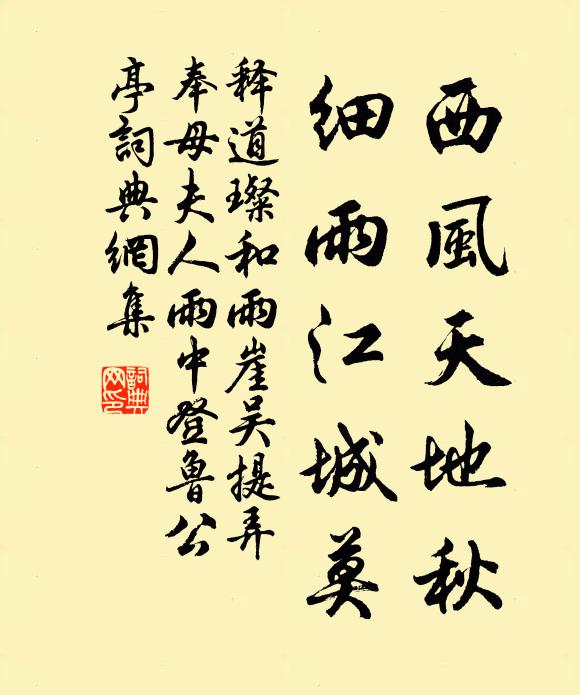 西風天地秋
細雨江城莫
释道璨和雨崖吴提弄
奉母夫人雨中登魯公
亭詞典網集
詞典網印